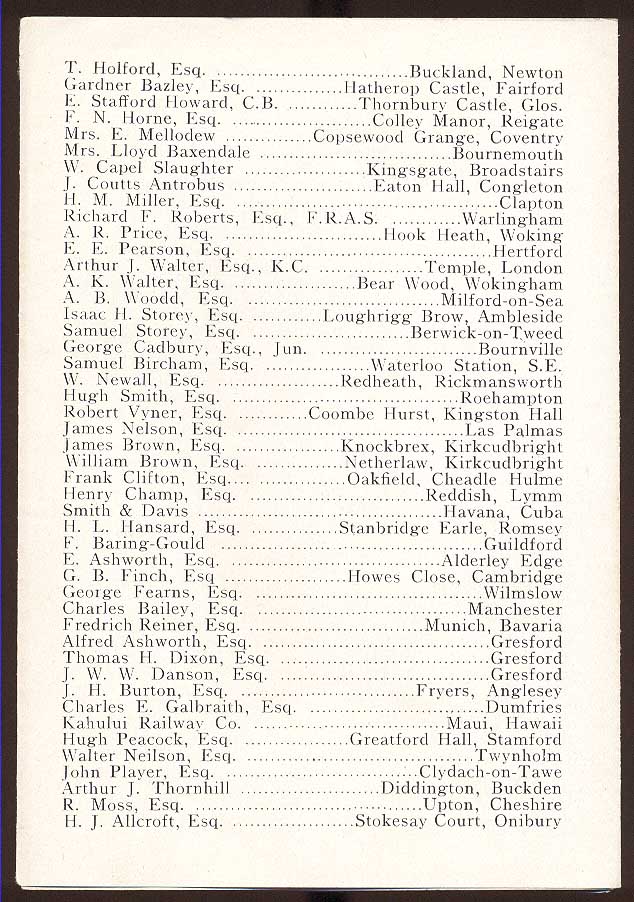 T. Holford, Esq. ................................Buckland, Newton
Gardner Bazley, Esq. ...............Hatherop Castle, Fairford
E. Stafford Howard, C.B. ............Thornbury Castle, Glos.
F. N. Horne, Esq. .........................Colley Manor, Reigate
Mrs. E. Mellodew ...............Copsewood Grange, Coventry
Mrs. Lloyd Baxendale .................................Bournemouth
W. Capel Slaughter .....................Kingsgate, Broadstairs
J. Coutts Antrobus ........................Eaton Hall, Congleton
H. M. Miller, Esq. .............................................Clapton
Richard F. Roberts, Esq., F.R.A.S. ............Warlingham
A. R. Price, Esq. ............................Hook Heath, Woking
E. E. Pearson, Esq. ...........................................Hertford
Arthur J. Walter, Esq., K.C. ..................Temple, London
A. K. Walter, Esq. .....................Bear Wood, Wokingham
A. B. Woodd, Esq. .................................Milford-on-Sea
Isaac H. Storey, Esq. ............Loughrigg Brow, Ambleside
Samuel Storey, Esq. ...........................Berwick-on-Tweed
George Cadbury, Esq., Jun. ...........................Bournville
Samuel Bircham, Esq. ..................Waterloo Station, S.E.
W. Newall, Esq. .....................Redheath, Rickmansworth
Hugh Smith, Esq. .......................................Roehampton
Robert Vyner, Esq. ............Coombe Hurst, Kingston Hall
James Nelson, Esq. .......................................Las Palmas
James Brown, Esq. ..................Knockbrex, Kirkcudbright
William Brown, Esq. ...............Netherlaw, Kirkcudbright
Frank Clifton, Esq.... .................Oakfield, Cheadle Hulme
Henry Champ, Esq. ..............................Reddish, Lymm
Smith & Davis ..........................................Havana, Cuba
H. L. Hansard, Esq. ...............Stanbridge Earle, Romsey
F. Baring-Gould .............................................Guildford
E. Ashworth, Esq. ......................................Alderley Edge
G. B. Finch, Esq .....................Howes Close, Cambridge
George Fearns, Esq. .......................................Wilmslow
Charles Bailey, Esq. ....................................Manchester
Fredrich Reiner, Esq. ..............................Munich, Bavaria
Alfred Ashworth, Esq. .......................................Gresford
Thomas H. Dixon, Esq. ....................................Gresford
J. W. W. Danson, Esq. ....................................Gresford
J. H. Burton, Esq. ..............................Fryers, Anglesey
Charles E. Galbraith, Esq. ................................Dumfries
Kahului Railway Co. .....................................Maui, Hawaii
Hugh Peacock, Esq. ..................Greatford Hall, Stamford
Walter Neilson, Esq. .......................................Twynholm
John Player, Esq. .................................Clydach-on-Tawe
Arthur J. Thornhill ........................Diddington, Buckden
R. Moss, Esq. .......................................Upton, Cheshire
H. J. Allcroft, Esq. .....................Stokesay Court, Onibury